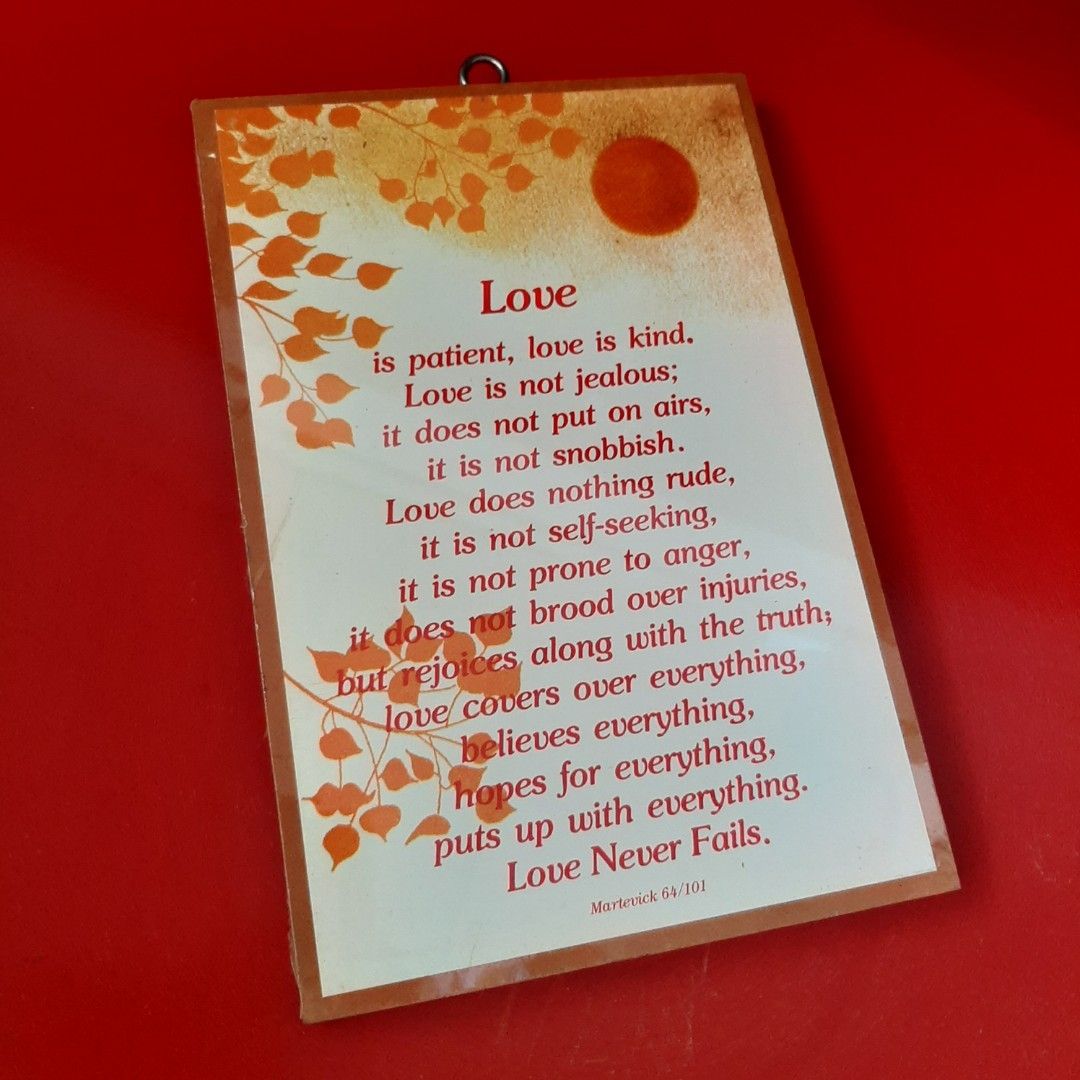 Love
is patient, love is kind.
Love is not jealous;
it does not put on airs,
it is not snobbish.
Love does nothing rude,
it is not self-seeking,
it is not prone to anger,
it does not brood over injuries,
but rejoices along with the truth;
love covers over everything,
believes everything,
hopes for everything,
puts up with everything.
Love Never Fails.
Martevick 64/101